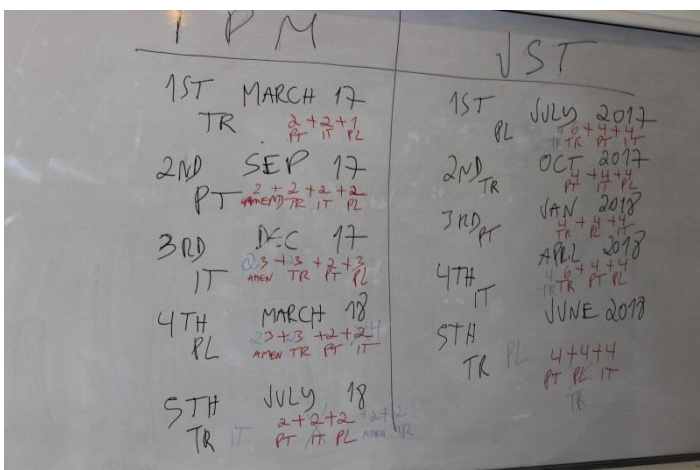 TPM
1ST MARCH 17
TR 2 + 2 + 1
PT IT PL
2ND SEP 17
PT 2 + 2 + 2 + 2
(AMEN) TR IT PL
3RD DEC 17
IT 3 + 3 + 2 + 3
AMEN TR PT PL
4TH MARCH 18
PL 3 + 3 + 2 + 2 4
AMEN TR PT IT
5TH JULY 18
TR IT 2 + 2 + 2 + 2 + 2
PT IT PL AMEN TR
JST
1ST JULY 2017
PL 6 + 4 + 4
TR TR PT IT
2ND OCT 2017
TR 4 + 4 + 4
PT IT PL
3RD JAN 2018
PT 4 + 4 + 4
TR PL IT
4TH APRIL 2018
IT 4 6 + 4 + 4
TR TR PT PL
5TH JUNE 2018
TR PL 4 + 4 + 4
PT PL IT
TR